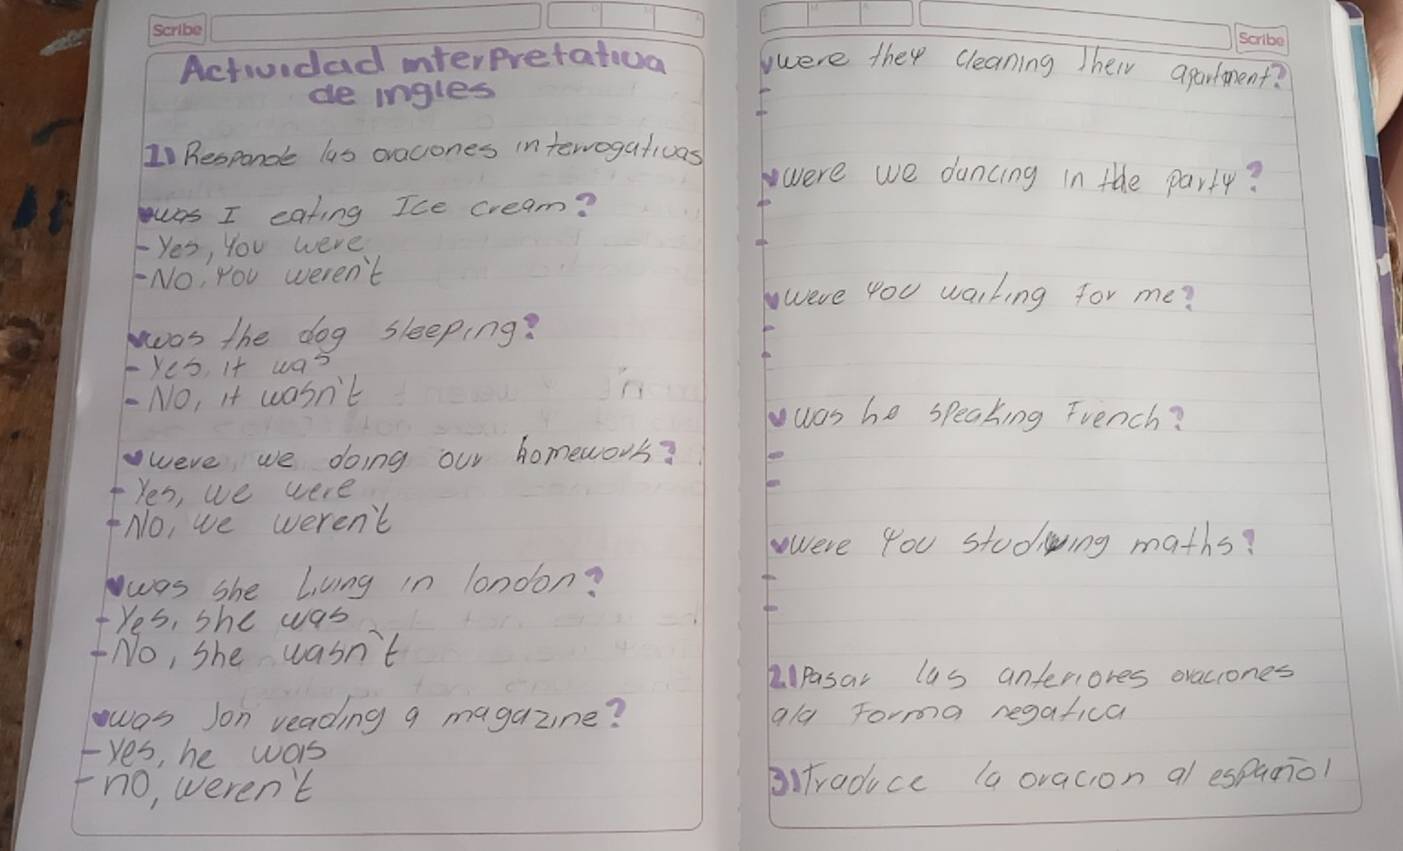 Scribe
Actividad interpretativa
de ingles
1) Responde las oraciones interrogativas
was I eating Ice cream?
- Yes, you were
- No, you weren't
was the dog sleeping?
- Yes, it was
- No, it wasn't
were we doing our homework?
- Yes, we were
- No, we weren't
was she Living in london?
- Yes, she was
- No, she wasn't
was Jon reading a magazine?
- yes, he was
- no, weren't
Scribe
were they cleaning their apartment?
-
-
were we dancing in the party?
-
-
were you waiting for me?
-
-
was he speaking French?
-
-
were you studying maths?
-
-
2) Pasar las anteriores oraciones
ala Forma negatica
3) Traduce la oracion al español